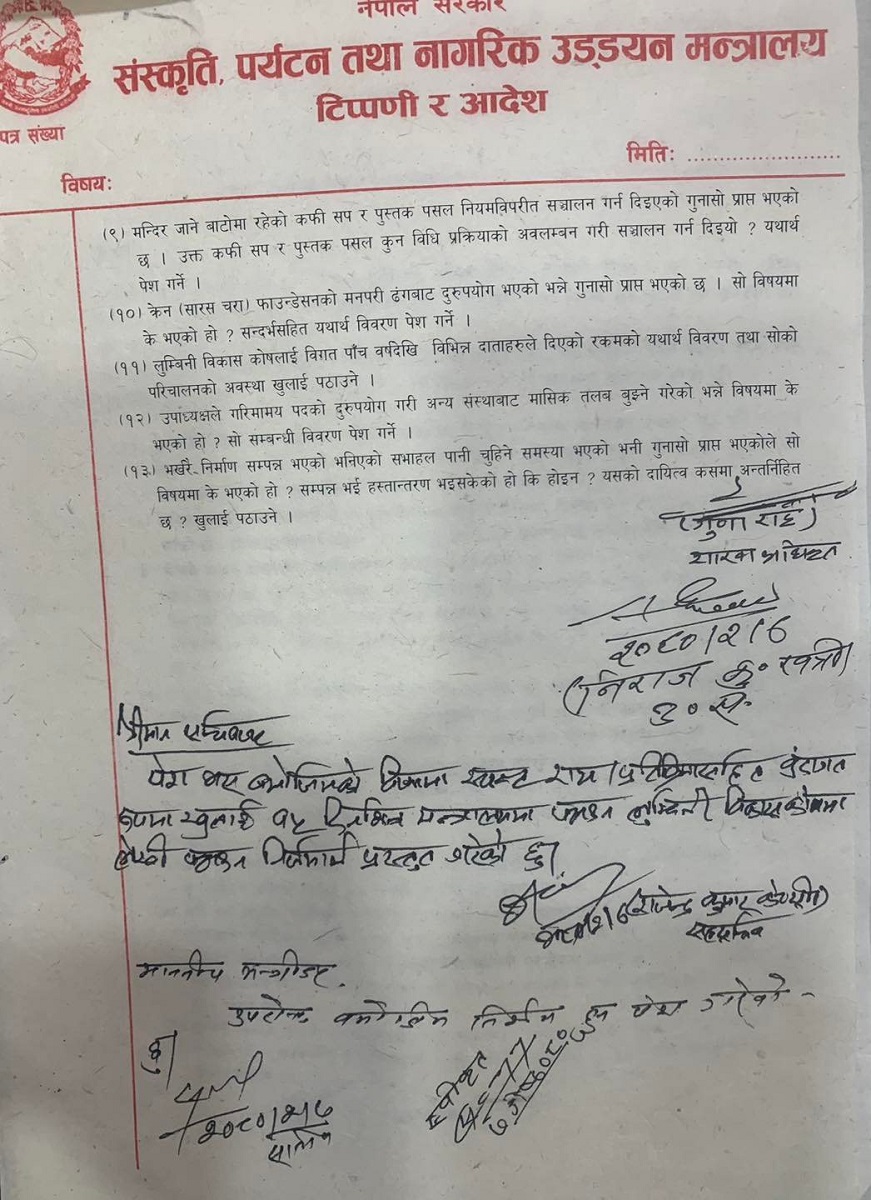 नेपाल सरकार
संस्कृति, पर्यटन तथा नागरिक उड्डयन मन्त्रालय
टिप्पणी र आदेश
पत्र संख्या
मितिः ........................
विषयः
(९) मन्दिर जाने बाटोमा रहेको कफी सप र पुस्तक पसल नियमविपरीत सञ्चालन गर्न दिइएको गुनासो प्राप्त भएको
छ । उक्त कफी सप र पुस्तक पसल कुन विधि प्रक्रियाको अवलम्बन गरी सञ्चालन गर्न दिइयो ? यथार्थ
पेश गर्ने ।
(१०) क्रेन (सारस चरा) फाउन्डेसनको मनपरी ढंगबाट दुरुपयोग भएको भन्ने गुनासो प्राप्त भएको छ । सो विषयमा
के भएको हो ? सन्दर्भसहित यथार्थ विवरण पेश गर्ने ।
(११) लुम्बिनी विकास कोषलाई विगत पाँच वर्षदेखि विभिन्न दाताहरुले दिएको रकमको यथार्थ विवरण तथा सोको
परिचालनको अवस्था खुलाई पठाउने ।
(१२) उपाध्यक्षले गरिमामय पदको दुरुपयोग गरी अन्य संस्थाबाट मासिक तलब बुझ्ने गरेको भन्ने विषयमा के
भएको हो ? सो सम्बन्धी विवरण पेश गर्ने ।
(१३) भर्खरै निर्माण सम्पन्न भएको भनिएको सभाहल पानी चुहिने समस्या भएको भनी गुनासो प्राप्त भएकोले सो
विषयमा के भएको हो ? सम्पन्न भई हस्तान्तरण भइसकेको हो कि होइन ? यसको दायित्व कसमा अन्तर्निहित
छ ? खुलाई पठाउने ।
शाखा अधिकृत
२०८०/२/७
(निराज कु.
उ.स.
श्रीमान सचिवज्यू
पेश भए बमोजिमको विषयमा स्पष्ट राय/प्रतिक्रियासहित बुंदागत
रुपमा खुलाई दिनभित्र मन्त्रालयमा पठाउन लुम्बिनी विकास कोषमा
लेखी पठाउन निर्णयार्थ प्रस्तुत गरेको छु।
(राजेन्द्र कुमार
सहसचिव
माननीय मन्त्रीज्यू,
उपरोक्त बमोजिम निर्णय हुन पेश गरेको
छु।
स्वीकृत
२०८०/२/७
सचिव